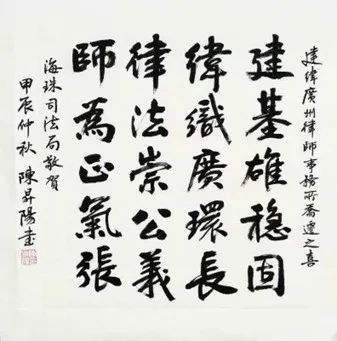 建緯廣州律師事務所喬遷之喜
建基雄穩固
緯織廣環長
律法崇公義
師為正氣張
海珠司法局敬賀
甲辰仲秋 陳昇陽書